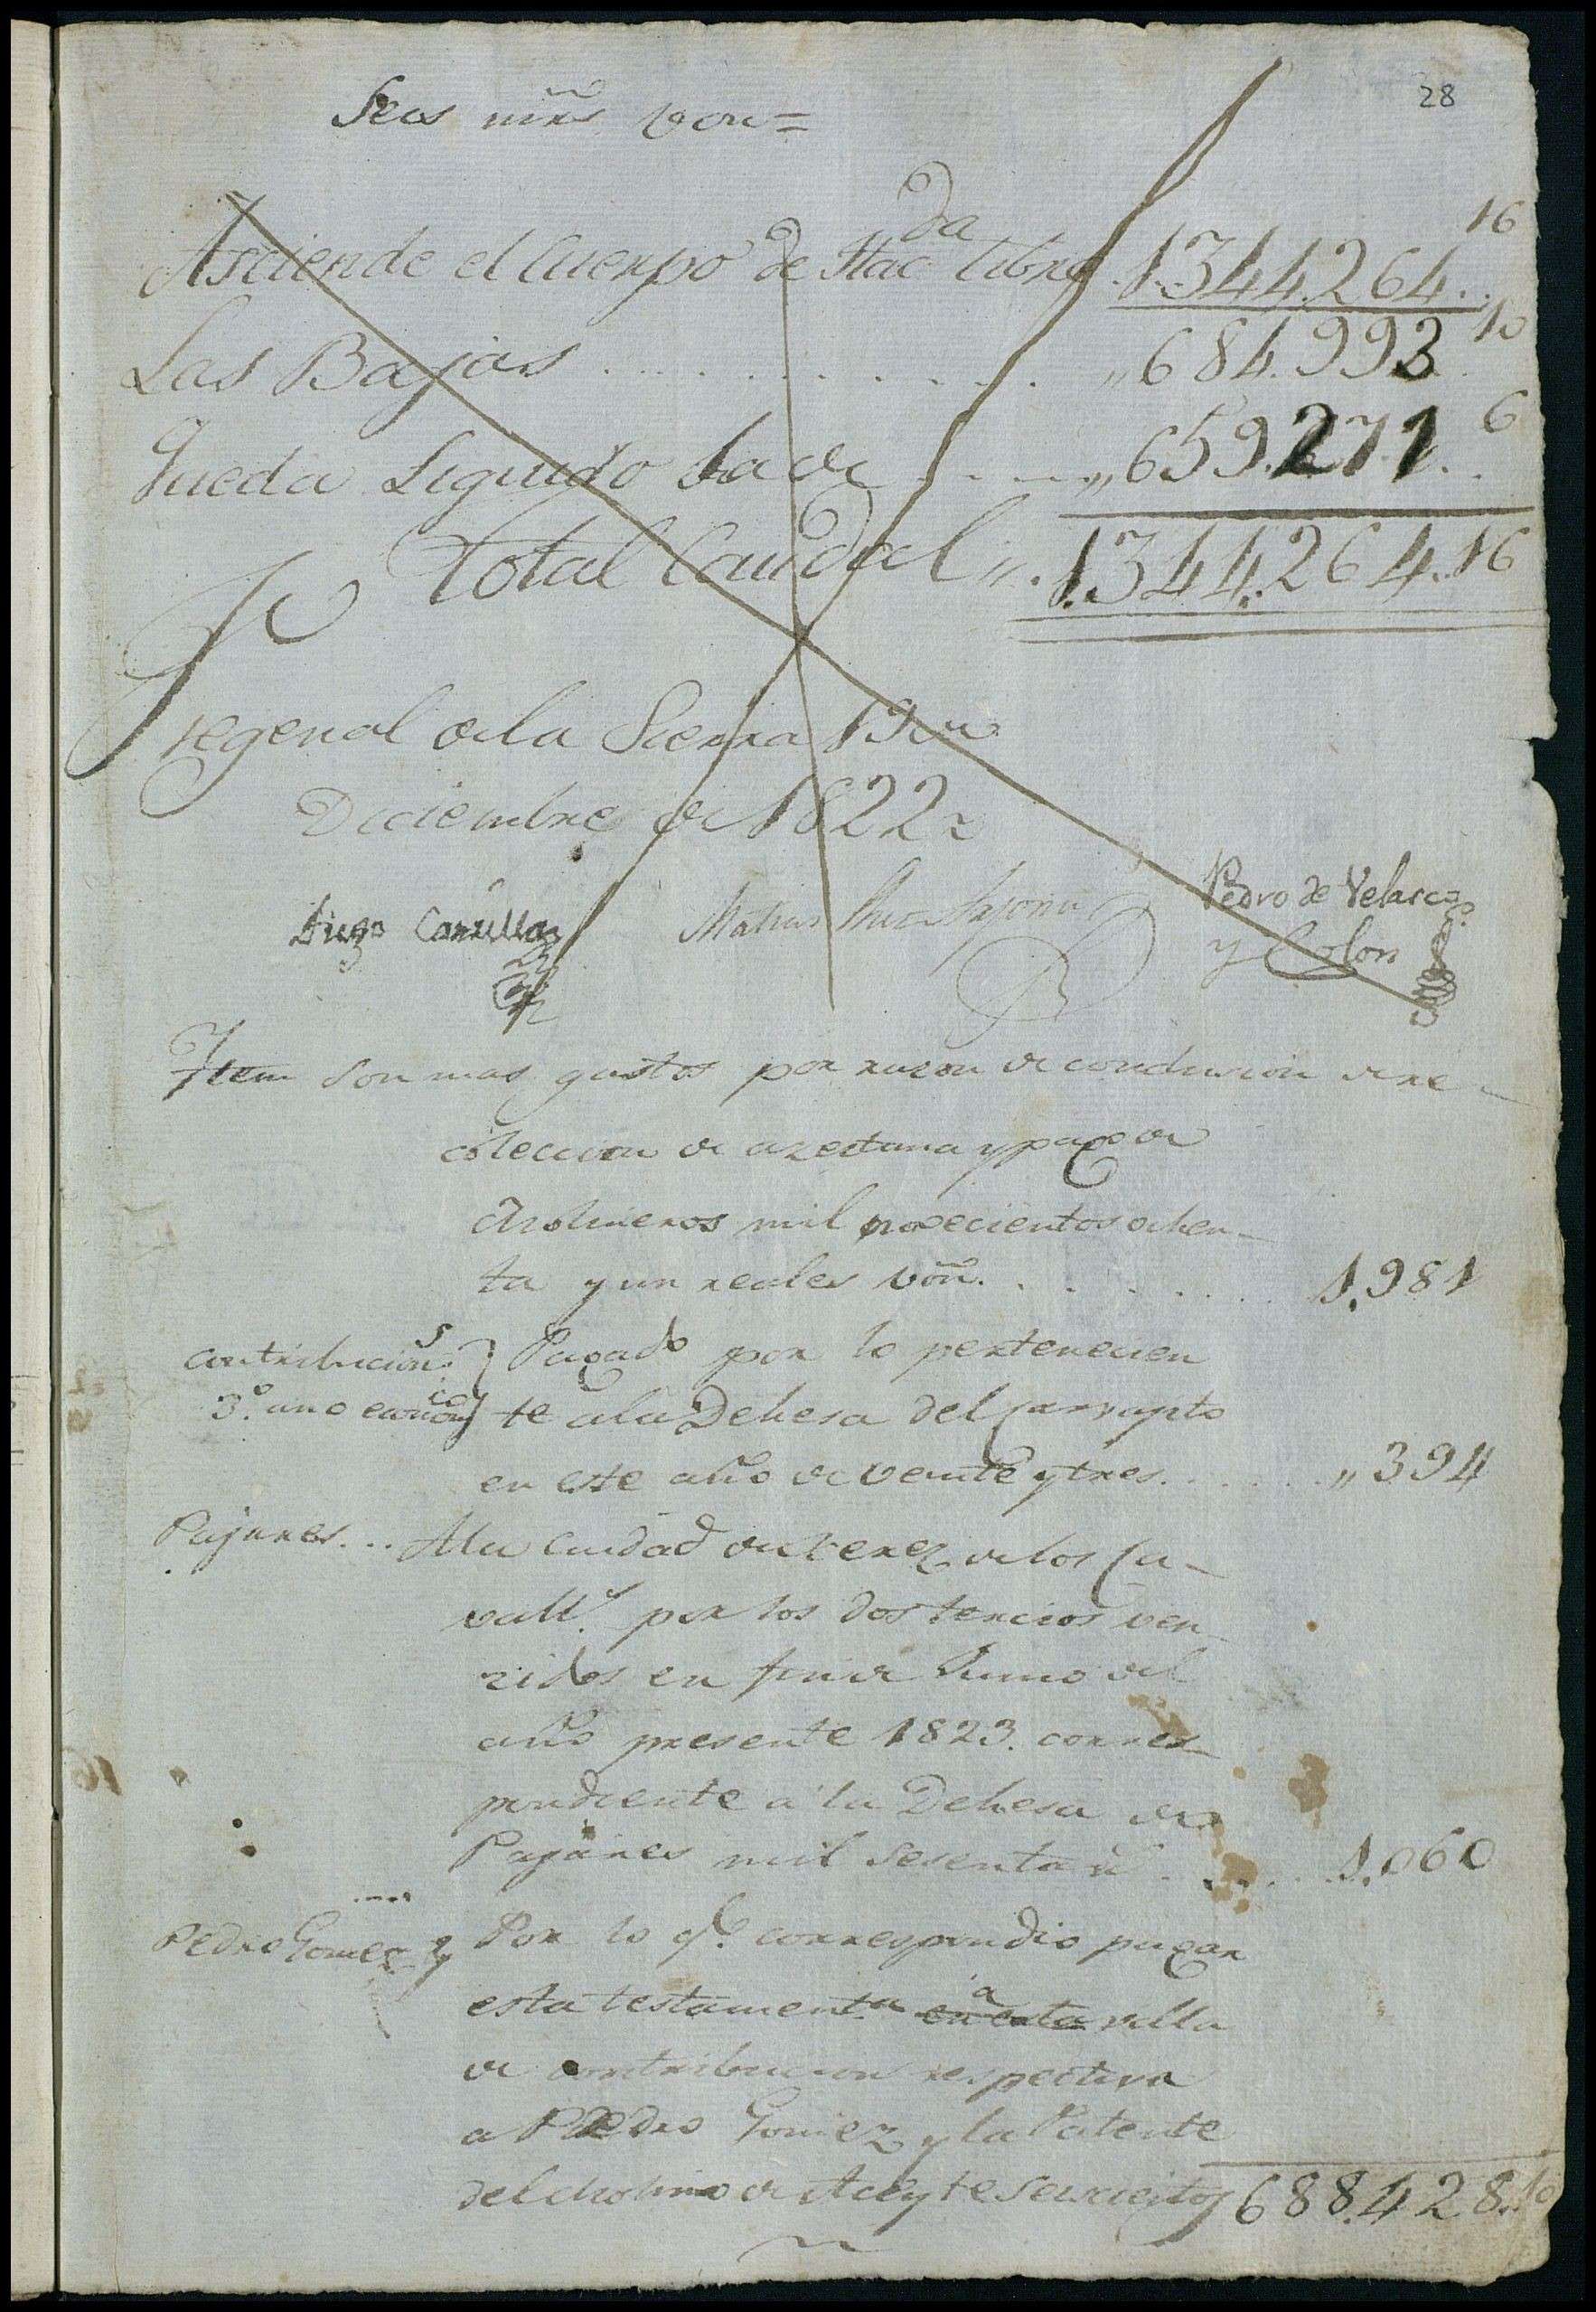 28
Seis mrs von=
Asciende el Cuerpo de Hac.da libre 1.344.264.. 16
Las Bajas . . . . . . . . . . . . „684.993 10
Queda Liquido . . . . „659.271.. 6
total Caudal „.1.344.264..16
Fregenal de la Sierra 19 de
Diciembre de 1822
Diego Carrillo
Matias
Pedro de Velasco
y Colon
Item son mas gastos por razon de conducion de re-
coleccion de azeituna y pago de
Molineros mil novecientos ochen-
ta y un reales von. . . . . . . . 1.981
contribucion.s } Pagado por lo pertenecien
3.º año economco } te a la Dehesa del Carrapto
en este año de veinte y tres. . . . . „394
Pajares... A la Ciudad de Xerez de los Ca-
vall.s por los dos tercios ven-
zidos en fin de Junio del
año presente 1823. corres-
pondiente a la Dehesa de
Pajares mil sesenta r.s . . . . . 1.060
Pedro Gomez } Por lo q.e correspondio pagar
esta testament.a en esta a villa
de contribucion respectiva
a Pedro Gomez y la Patente
del Molino de Aceyte seiscientos 688.428..10